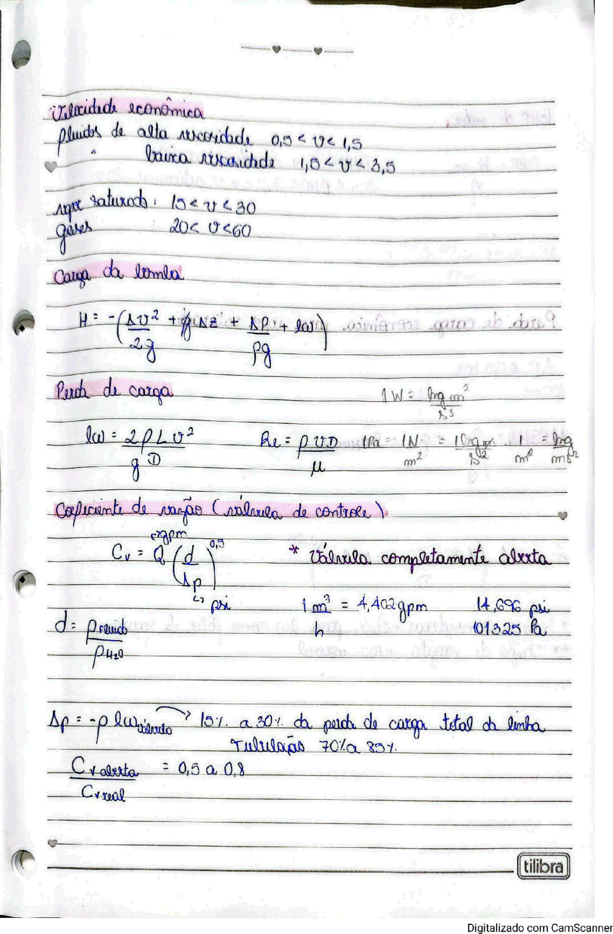 Velocidade econômica
fluidos de alta viscosidade 0,5 < v < 1,5
" baixa viscosidade 1,5 < v < 3,5
vapor saturado: 15 < v < 30
gases : 20 < v < 60
Carga da bomba
H = -(Δv²/2g + Δz + Δp/ρg + lw)
Perda de carga
1 W = 1 kg m²/s³
lw = 2 f L v²/g D
Re = ρ v D/μ
1 Pa = 1 N/m² = 1 kg m/s² . 1/m² = kg/m s²
Coeficiente de vazão (válvula de controle)
gpm
Cv = Q (d/Δp)^0,5 * Válvula completamente aberta
↳ psi
1 m³/h = 4,402 gpm
14,696 psi
101325 Pa
d = ρ fluido/ρ H₂O
Δp = -ρ lw válvula → 15% a 30% da perda de carga total da linha
Tubulação 70% a 85%
Cv aberta/Cv real = 0,5 a 0,8
tilibra
Digitalizado com CamScanner